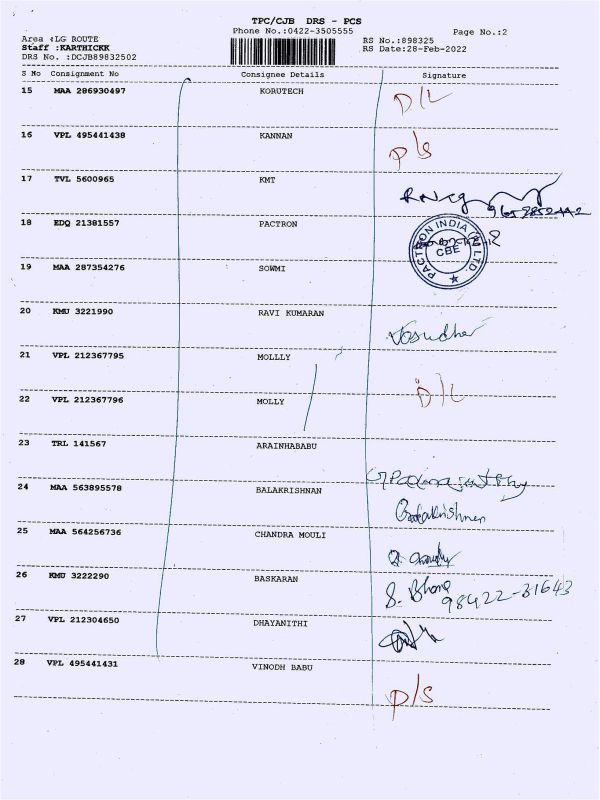 TPC/CJB DRS - PCS
Phone No.:0422-3505555
Page No.:2
Area :LG ROUTE
RS No.:898325
Staff :KARTHICKK
RS Date:28-Feb-2022
DRS No. :DCJB89832502
S No Consignment No Consignee Details Signature
15 MAA 286930497 KORUTECH D/L
16 VPL 495441438 KANNAN P/S
17 TVL 5600965 KMT
18 EDQ 21381557 PACTRON
PACTRON INDIA (P) LTD.
CBE
19 MAA 287354276 SOWMI
20 KMU 3221990 RAVI KUMARAN Vasudher
21 VPL 212367795 MOLLLY
22 VPL 212367796 MOLLY D/L
23 TRL 141567 ARAINHABABU
24 MAA 563895578 BALAKRISHNAN Balakrishnan
25 MAA 564256736 CHANDRA MOULI
26 KMU 3222290 BASKARAN 98422-31643
27 VPL 212304650 DHAYANITHI
28 VPL 495441431 VINODH BABU P/S